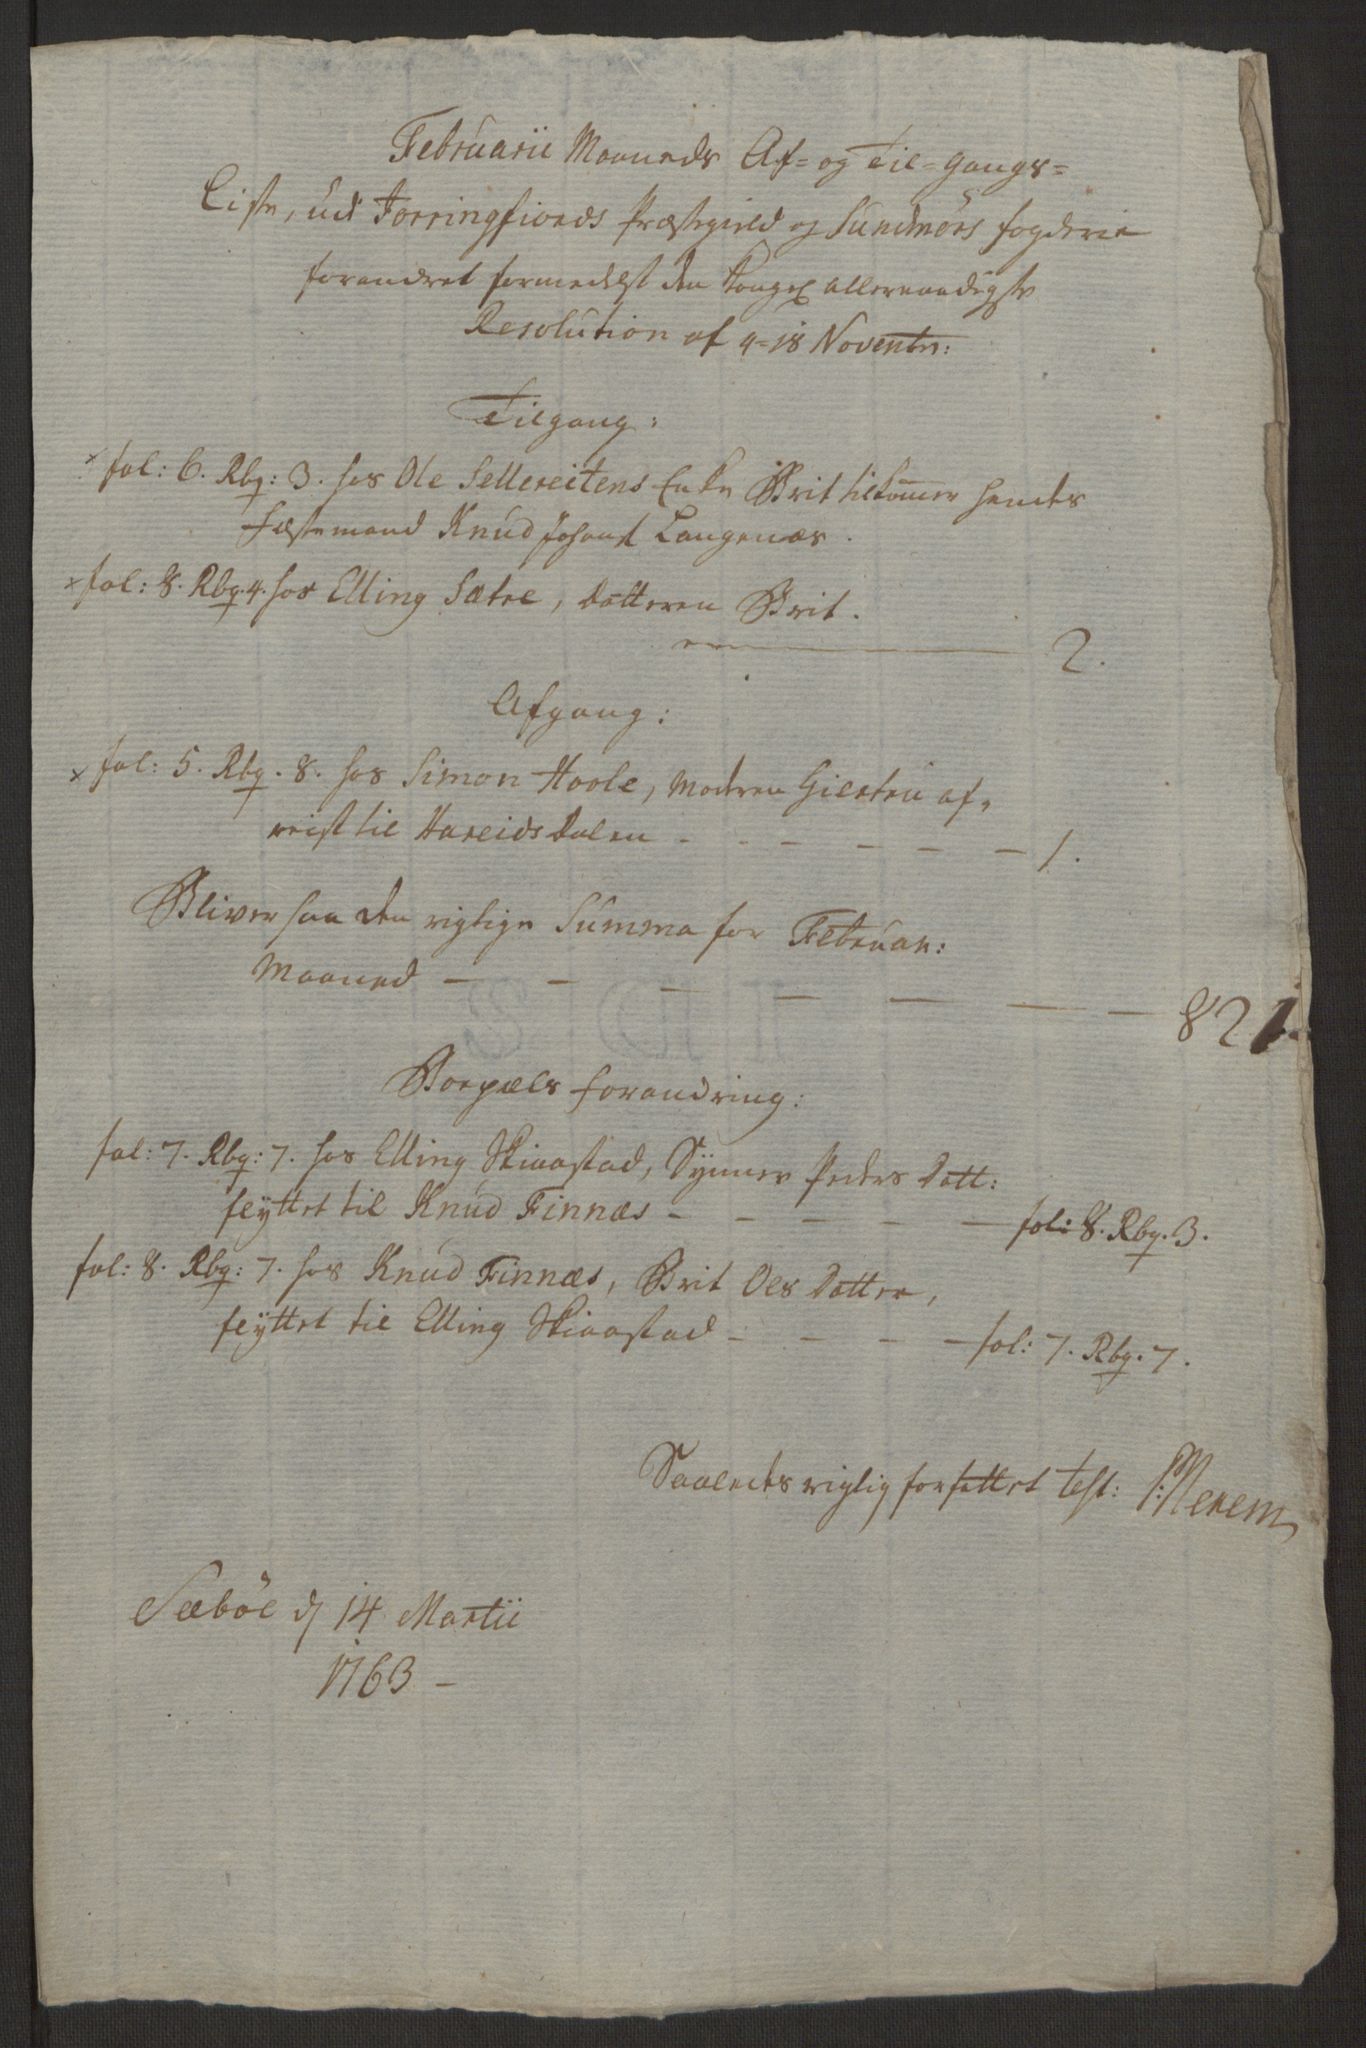 Februarii Maaneds Af= og Til=gangs=
Liste, udi Jørringfiords Præstegield og Sundmørs fogderie
forandret formedelst den Kongel allernaadigste
Resolution af 4=18 Novembr:
Tilgang:
× fol: 6. Rbq: 3. hos Ole Sellereitens Enke Brit tilkom̄er hendes
fæstemand Knud Johans Langenæs.
× fol: 8. Rbq. 4. hos Elling Sætre, datteren Brit.
er 2.
Afgang:
× fol: 5. Rbq. 8. hos Simon Hoole, modren Giertru af=
reist til Hareids dalen - - - - - - 1.
Bliver saa den rigtige Summa for Februar:
Maaned - - - - - - - 821
Borpæls forandring:
fol: 7. Rbq: 7. hos Elling Skiaastad, Synnev Peders Datt:
flÿttet til Knud Finnæs - - - - - fol: 8. Rbq. 3.
fol: 8. Rbq: 7. hos Knud Finnæs, Brit Ols Datter,
flÿttet til Elling Skiaastad - - - - fol: 7. Rbq. 7.
Saaledes rigtig forfattet test:
Sæbøe d 14 Martii
1763 -